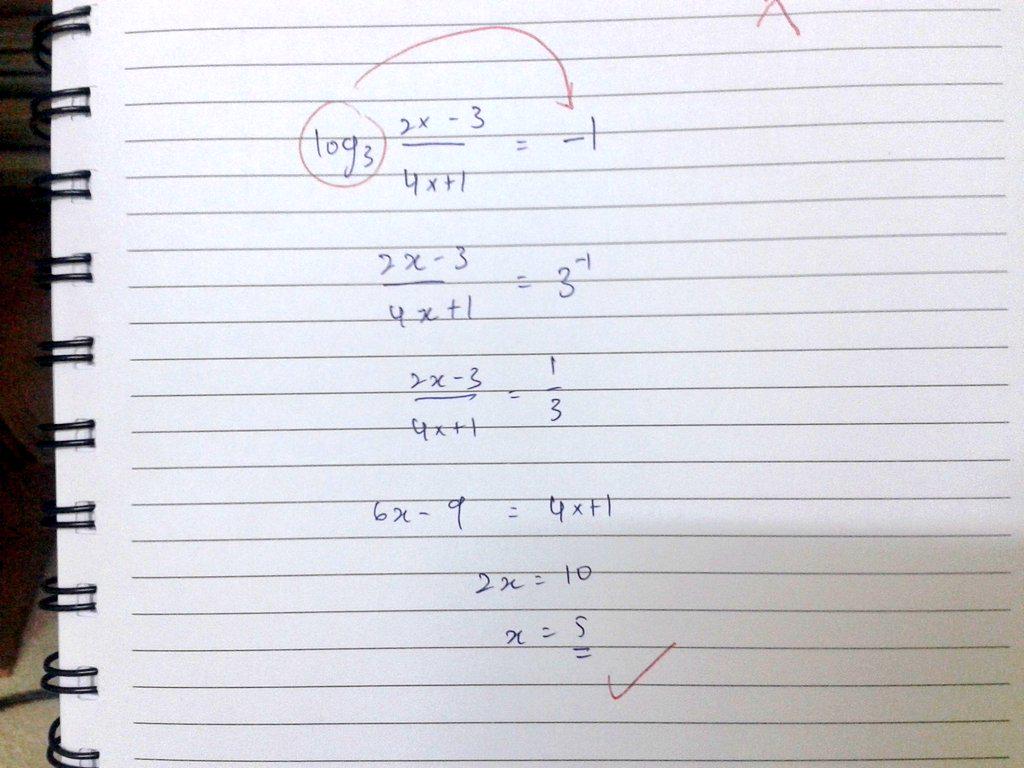 log₃ (2x - 3)/(4x+1) = -1
(2x - 3)/(4x+1) = 3⁻¹
(2x-3)/(4x+1) = 1/3
6x - 9 = 4x+1
2x = 10
x = 5